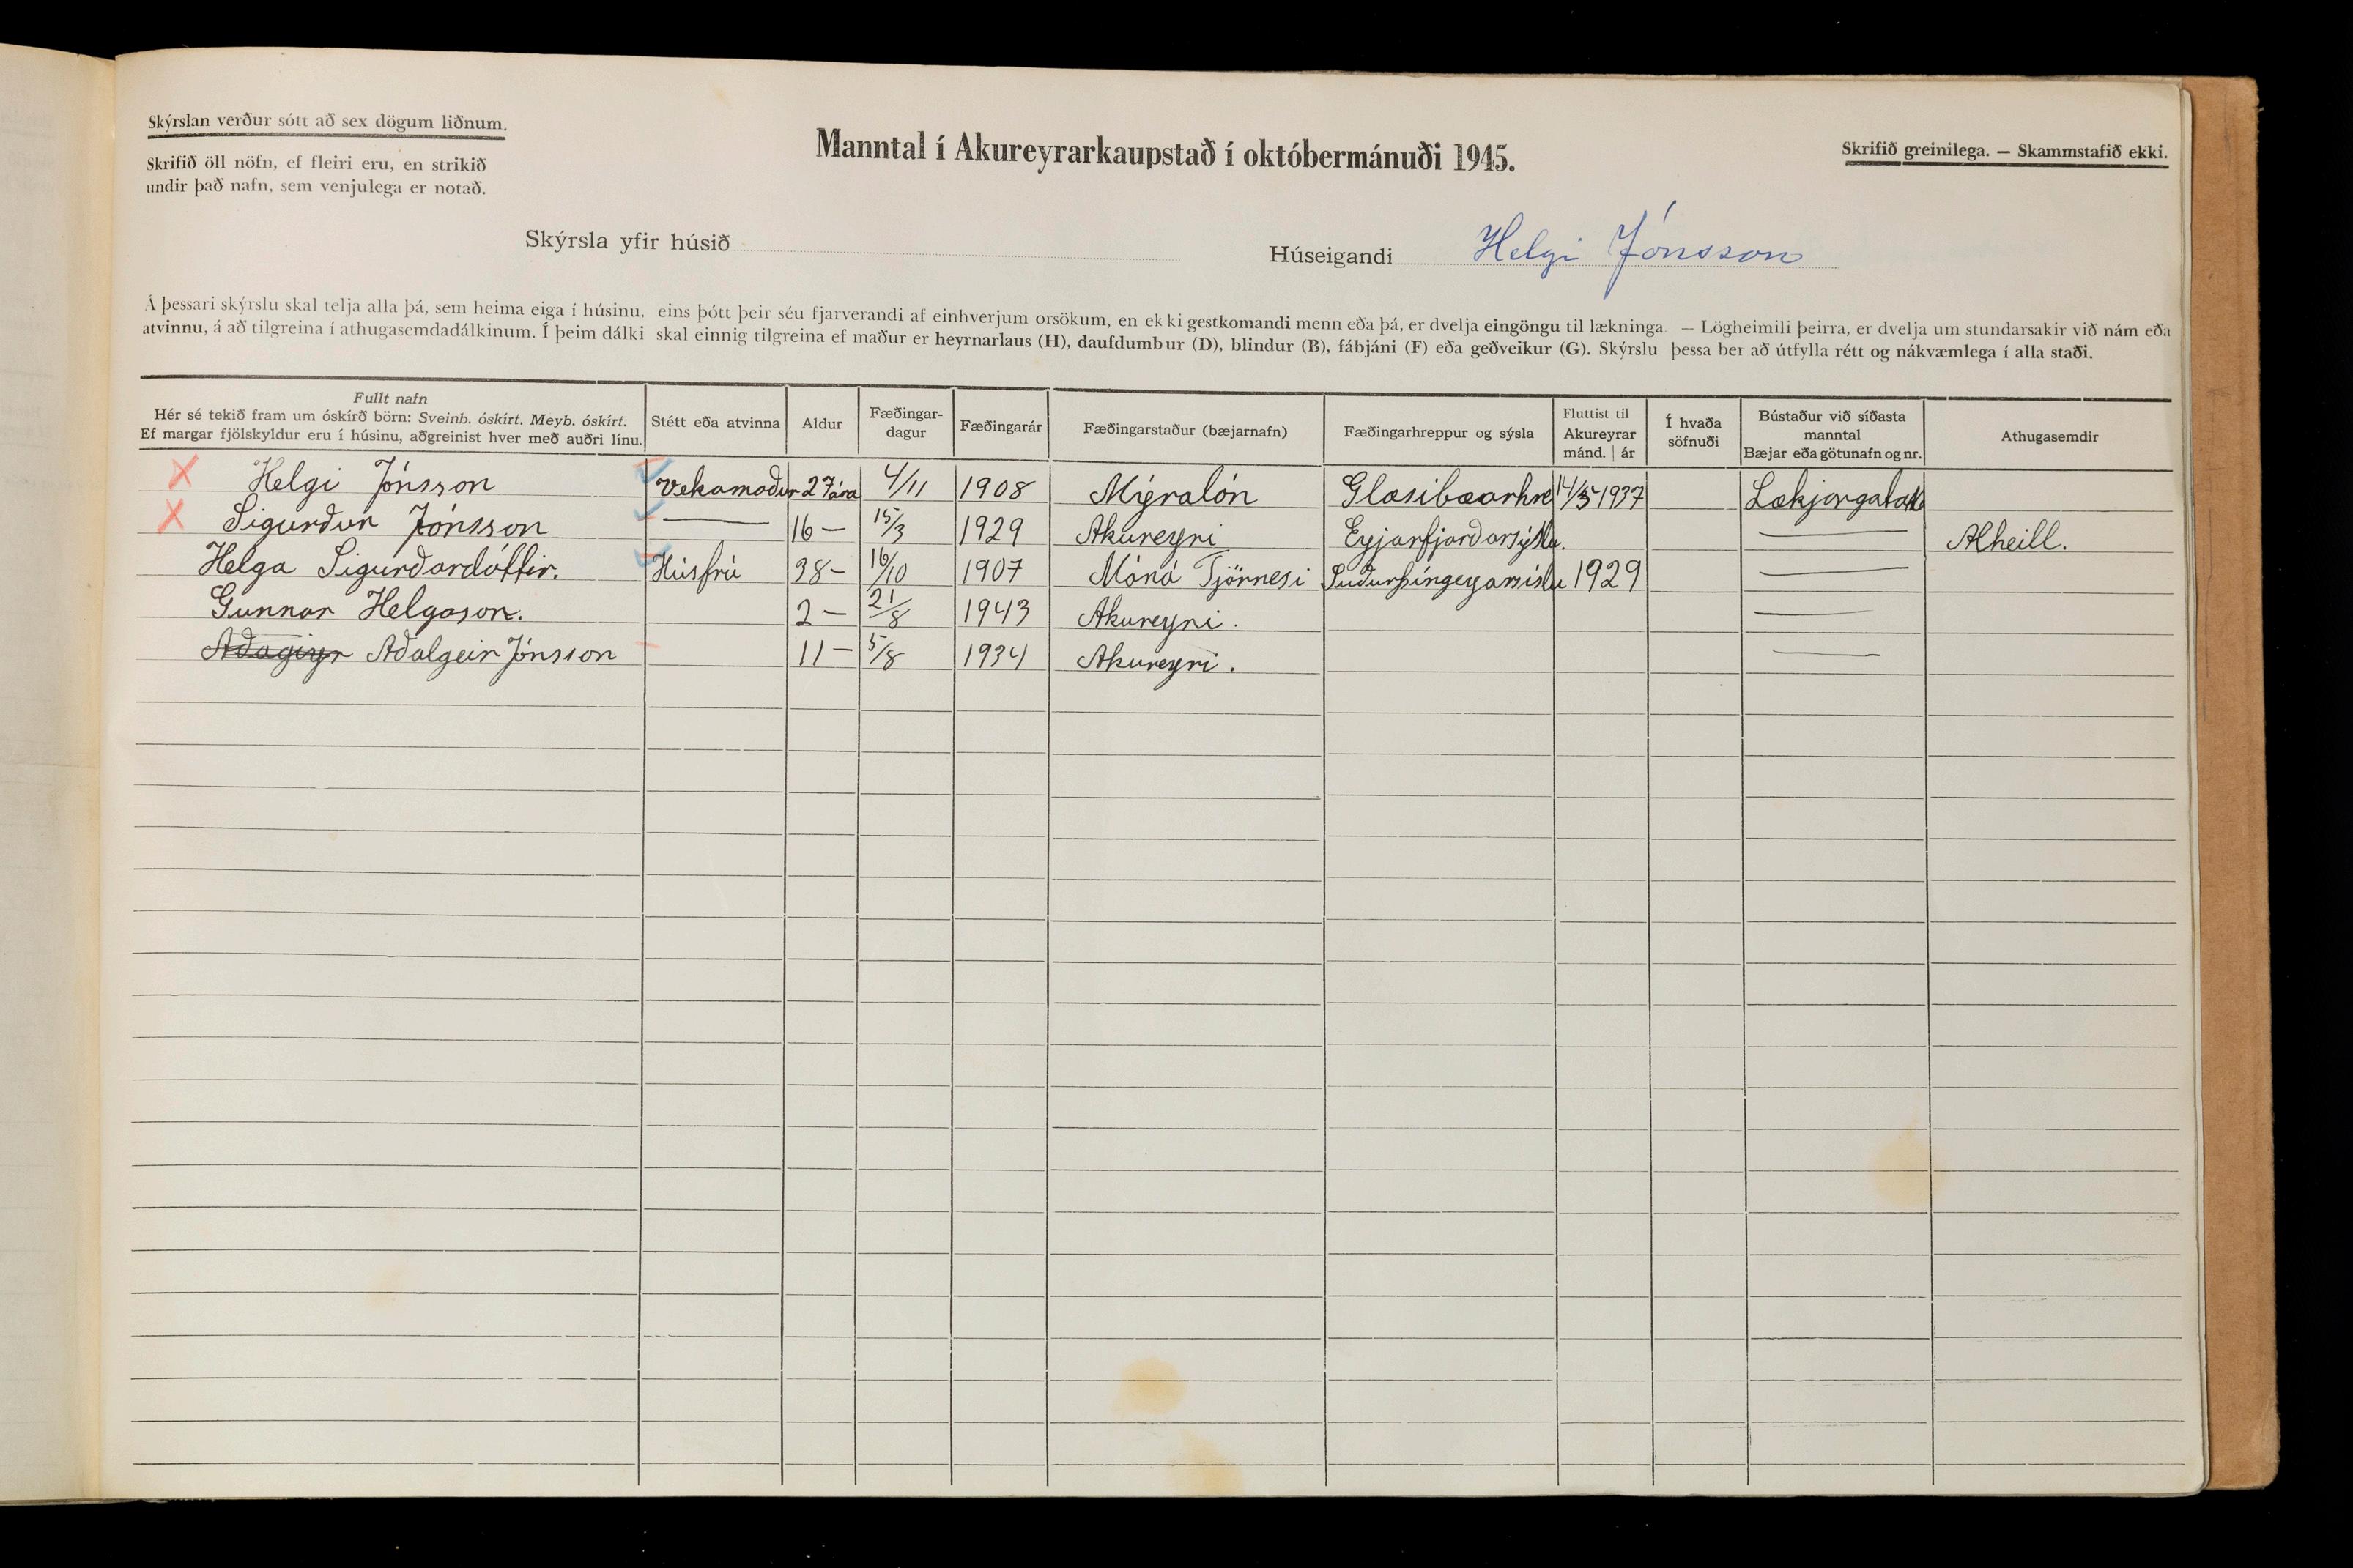 Skýrslan verður sótt að sex dögum liðnum.
Skrifið öll nöfn, ef fleiri eru, en strikið
undir það nafn, sem venjulega er notað.
Manntal í Akureyrarkaupstað í októbermánuði 1945.
Skrifið greinilega. — Skammstafið ekki.
Skýrsla yfir húsið
Húseigandi Helgi Jónsson
Á þessari skýrslu skal telja alla þá, sem heima eiga í húsinu, eins þótt þeir séu fjarverandi af einhverjum orsökum, en ekki gestkomandi menn eða þá, er dvelja eingöngu til lækninga. — Lögheimili þeirra, er dvelja um stundarsakir við nám eða
atvinnu, á að tilgreina í athugasemdadálkinum. Í þeim dálki skal einnig tilgreina ef maður er heyrnarlaus (H), daufdumbur (D), blindur (B), fábjáni (F) eða geðveikur (G). Skýrslu þessa ber að útfylla rétt og nákvæmlega í alla staði.
Fullt nafn
Hér sé tekið fram um óskírð börn: Sveinb. óskírt. Meyb. óskírt.
Ef margar fjölskyldur eru í húsinu, aðgreinist hver með auðri línu.
Stétt eða atvinna
Aldur
Fæðingar-
dagur
Fæðingarár
Fæðingarstaður (bæjarnafn)
Fæðingarhreppur og sýsla
Fluttist til
Akureyrar
mánd. | ár
Í hvaða
söfnuði
Bústaður við síðasta
manntal
Bæjar eða götunafn og nr.
Athugasemdir
Helgi Jónsson Vekamaður 27 ára 4/11 1908 Mýralón Glæsibæarhre 1937
Sigurður Jónsson — 16 — 15/3 1929 Akureyri Eyjarfjarðarsýslu. — Alheill.
Helga Sigurðardóttir. Húsfrú 38 — 16/10 1907 Máná Tjörnesi Suðurþingeyarsíslu 1929 —
Gunnar Helgason. 2 — 21/8 1943 Akureyri. —
Aðagiyr Aðalgeir Jónsson 11 — 5/8 1934 Akureyri. —